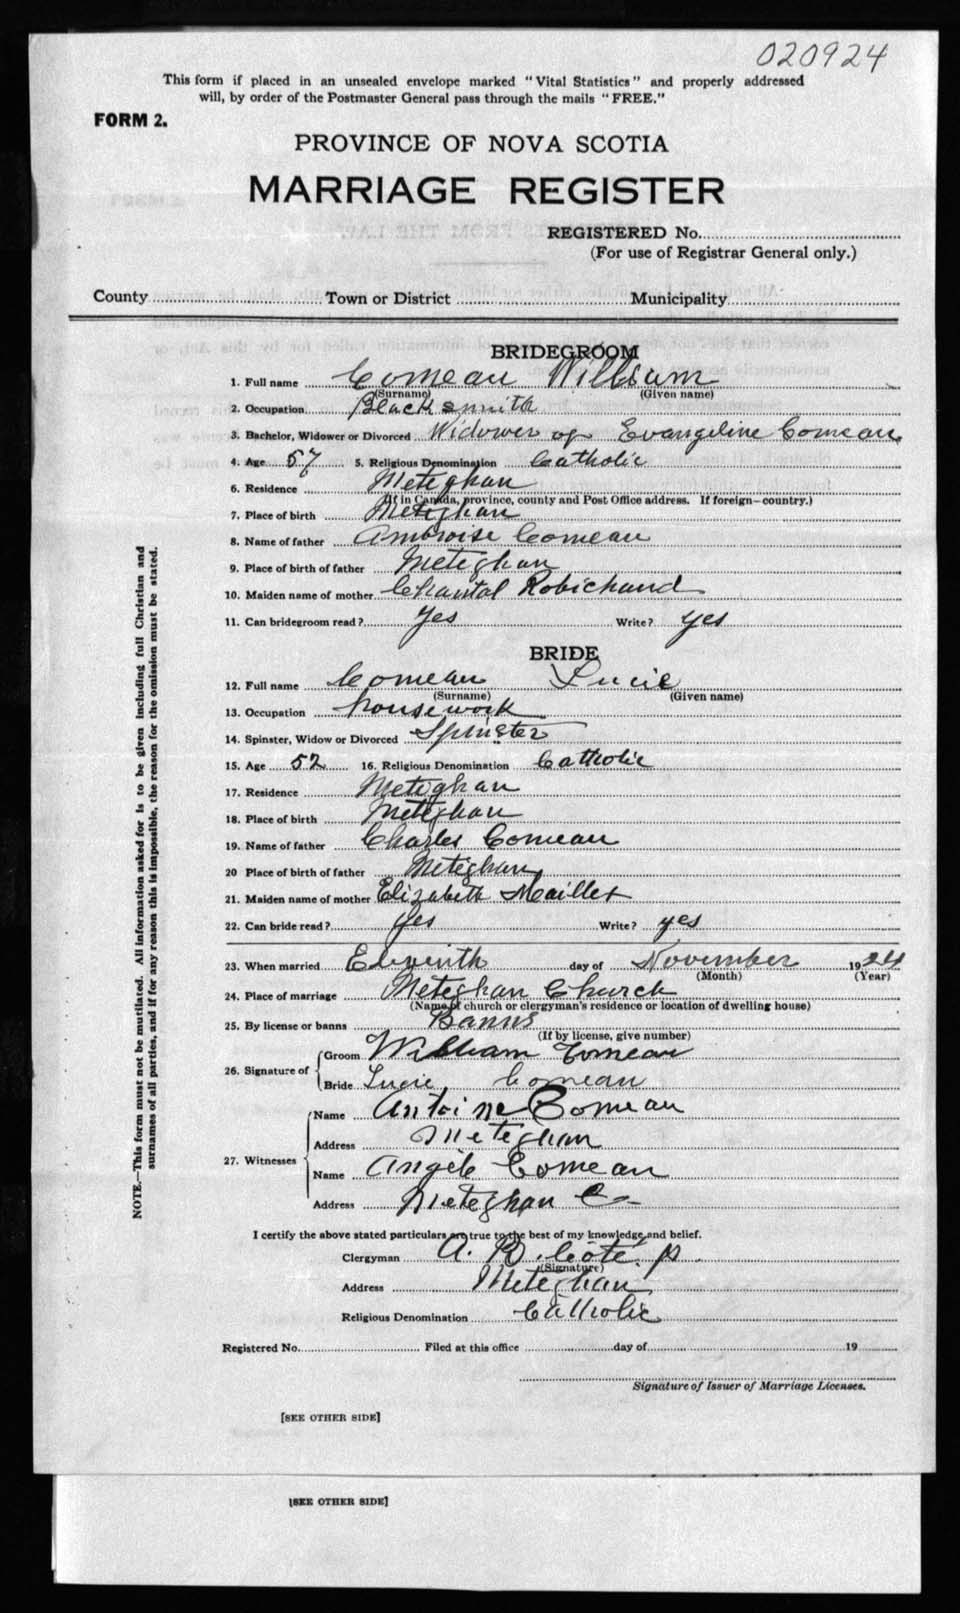 020924
This form if placed in an unsealed envelope marked "Vital Statistics" and properly addressed
will, by order of the Postmaster General pass through the mails "FREE."
FORM 2.
PROVINCE OF NOVA SCOTIA
MARRIAGE REGISTER
REGISTERED No.
(For use of Registrar General only.)
County Town or District Municipality
BRIDEGROOM
1. Full name Comeau William
(Surname) (Given name)
2. Occupation Blacksmith
3. Bachelor, Widower or Divorced Widower of Evangeline Comeau
4. Age 57 5. Religious Denomination Catholic
6. Residence Meteghan
(If in Canada, province, county and Post Office address. If foreign—country.)
7. Place of birth Meteghan
8. Name of father Ambroise Comeau
9. Place of birth of father Meteghan
10. Maiden name of mother Chantal Robichaud
11. Can bridegroom read? Yes Write? yes
BRIDE
12. Full name Comeau Lucie
(Surname) (Given name)
13. Occupation housework
14. Spinster, Widow or Divorced Spinster
15. Age 52 16. Religious Denomination Catholic
17. Residence Meteghan
18. Place of birth Meteghan
19. Name of father Charles Comeau
20 Place of birth of father Meteghan
21. Maiden name of mother Elizabeth Maillet
22. Can bride read? Yes Write? yes
23. When married Eleventh day of November 1924
(Month) (Year)
24. Place of marriage Meteghan Church
(Name of church or clergyman's residence or location of dwelling house)
25. By license or banns Banns
(If by license, give number)
26. Signature of Groom William Comeau
Bride Lucie Comeau
27. Witnesses Name Antoine Comeau
Address Meteghan
Name Angele Comeau
Address Meteghan
I certify the above stated particulars are true to the best of my knowledge and belief.
Clergyman A. B. Côté p.
(Signature)
Address Meteghan
Religious Denomination Catholic
Registered No. Filed at this office day of 19
Signature of Issuer of Marriage Licenses.
[SEE OTHER SIDE]
[SEE OTHER SIDE]
NOTE.—This form must not be mutilated. All information asked for is to be given including full Christian and
surnames of all parties, and if for any reason this is impossible, the reason for the omission must be stated.